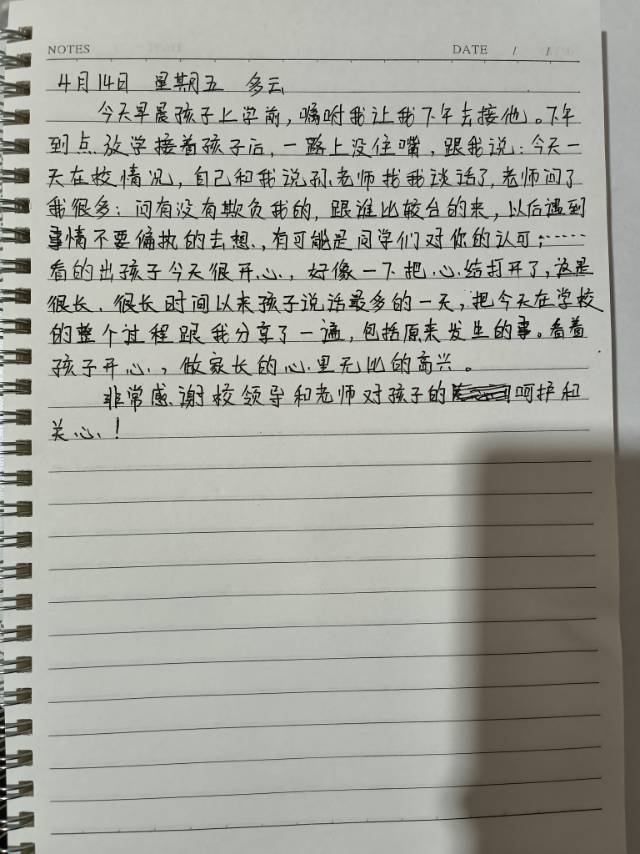 NOTES DATE / /
4月14日 星期五 多云
今天早晨孩子上学前，嘱咐我让我下午去接他。下午
到点放学接着孩子后，一路上没住嘴，跟我说：今天一
天在校情况，自己和我说孙老师找我谈话了，老师问了
我很多：问有没有欺负我的，跟谁比较合的来，以后遇到
事情不要偏执的去想，有可能是同学们对你的认可；……
看的出孩子今天很开心，好像一下把心结打开了，这是
很长、很长时间以来孩子说话最多的一天，把今天在学校
的整个过程跟我分享了一遍，包括原来发生的事。看着
孩子开心，做家长的心里无比的高兴。
非常感谢校领导和老师对孩子的呵护和
关心！